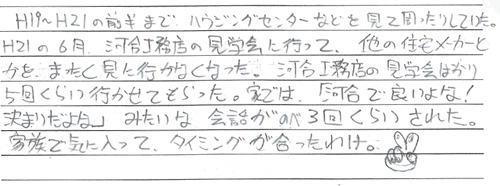 H19～H21の前半まで、ハウジングセンターなどを見て周ったりしていた。
H21の6月、河合工務店の見学会に行って、他の住宅メーカーと
かを、まったく見に行かなくなった。河合工務店の見学会ばかり
5回くらい行かせてもらった。家では、「河合で良いよな!
決まりだよな」みたいな会話がのべ3回くらいされた。
家族で気に入って、タイミングが合ったわけ。